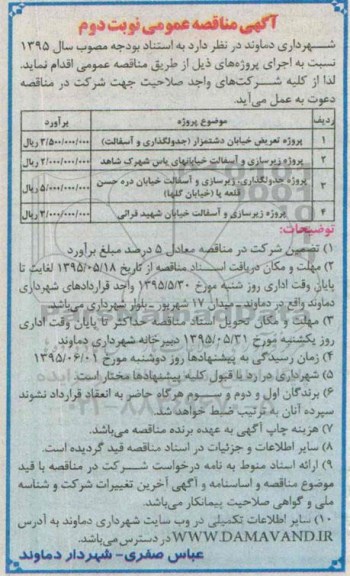 آگهی مناقصه عمومی نوبت دوم
شهرداری دماوند در نظر دارد به استناد بودجه مصوب سال ۱۳۹۵
نسبت به اجرای پروژه‌های ذیل از طریق مناقصه عمومی اقدام نماید.
لذا از کلیه شرکت‌های واجد صلاحیت جهت شرکت در مناقصه
دعوت به عمل می‌آید.
ردیف موضوع پروژه برآورد
۱ پروژه تعریض خیابان دشتمزار (جدولگذاری و آسفالت) ۳/۵۰۰/۰۰۰/۰۰۰ ریال
۲ پروژه زیرسازی و آسفالت خیابانهای یاس شهرک شاهد ۲/۰۰۰/۰۰۰/۰۰۰ ریال
۳ پروژه جدولگذاری، زیرسازی و آسفالت خیابان دره حسن
قلعه پا (خیابان گلها) ۵/۰۰۰/۰۰۰/۰۰۰ ریال
۴ پروژه زیرسازی و آسفالت خیابان شهید قرائی ۲/۰۰۰/۰۰۰/۰۰۰ ریال
توضیحات:
۱) تضمین شرکت در مناقصه معادل ۵ درصد مبلغ برآورد
۲) مهلت و مکان دریافت اسناد مناقصه از تاریخ ۱۳۹۵/۰۵/۱۸ لغایت تا
پایان وقت اداری روز شنبه مورخ ۱۳۹۵/۵/۳۰ واحد قراردادهای شهرداری
دماوند واقع در دماوند - میدان ۱۷ شهریور - بلوار شهرداری می‌باشد.
۳) مهلت و مکان تحویل اسناد مناقصه حداکثر تا پایان وقت اداری
روز یکشنبه مورخ ۱۳۹۵/۰۵/۳۱ دبیرخانه شهرداری دماوند
۴) زمان رسیدگی به پیشنهادها روز دوشنبه مورخ ۱۳۹۵/۰۶/۰۱
۵) شهرداری در رد یا قبول کلیه پیشنهادها مختار است.
۶) برندگان اول و دوم و سوم هرگاه حاضر به انعقاد قرارداد نشوند
سپرده آنان به ترتیب ضبط خواهد شد.
۷) هزینه چاپ آگهی به عهده برنده مناقصه می‌باشد.
۸) سایر اطلاعات و جزئیات در اسناد مناقصه قید گردیده است.
۹) ارائه اسناد منوط به نامه درخواست شرکت در مناقصه با قید
موضوع مناقصه و اساسنامه و آگهی آخرین تغییرات شرکت و شناسه
ملی و گواهی صلاحیت پیمانکار می‌باشد.
۱۰) سایر اطلاعات تکمیلی در وب سایت شهرداری دماوند به آدرس
WWW.DAMAVAND.IR در دسترس می‌باشد.
عباس صفری - شهردار دماوند